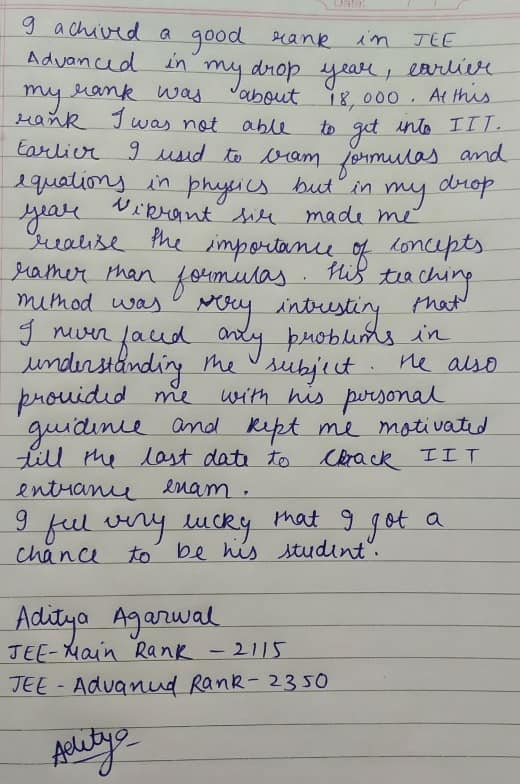 I achived a good rank in JEE
Advanced in my drop year, earlier
my rank was about 18,000. At this
rank I was not able to get into IIT.
Earlier I used to cram formulas and
equations in physics but in my drop
year Vikrant sir made me
realise the importance of concepts
rather than formulas. His teaching
method was very intresting that
I never faced any problems in
understanding the subject. He also
provided me with his personal
guidence and kept me motivated
till the last date to crack IIT
entrance exam.
I feel very lucky that I got a
chance to be his student.
Aditya Agarwal
JEE-Main Rank - 2115
JEE - Advanced Rank - 2350
Aditya